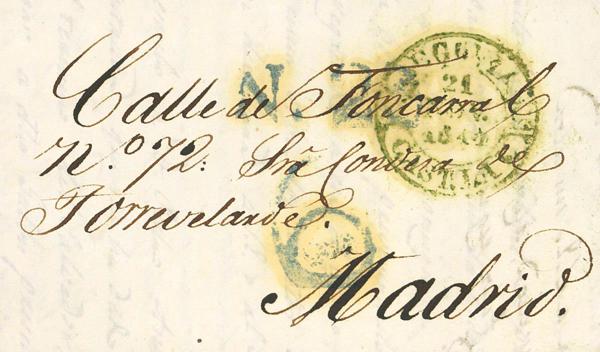 Calle de Foncarral
N.º 72: Srã Condesa de
Torrevelarde.
Madrid.
6
21
1844